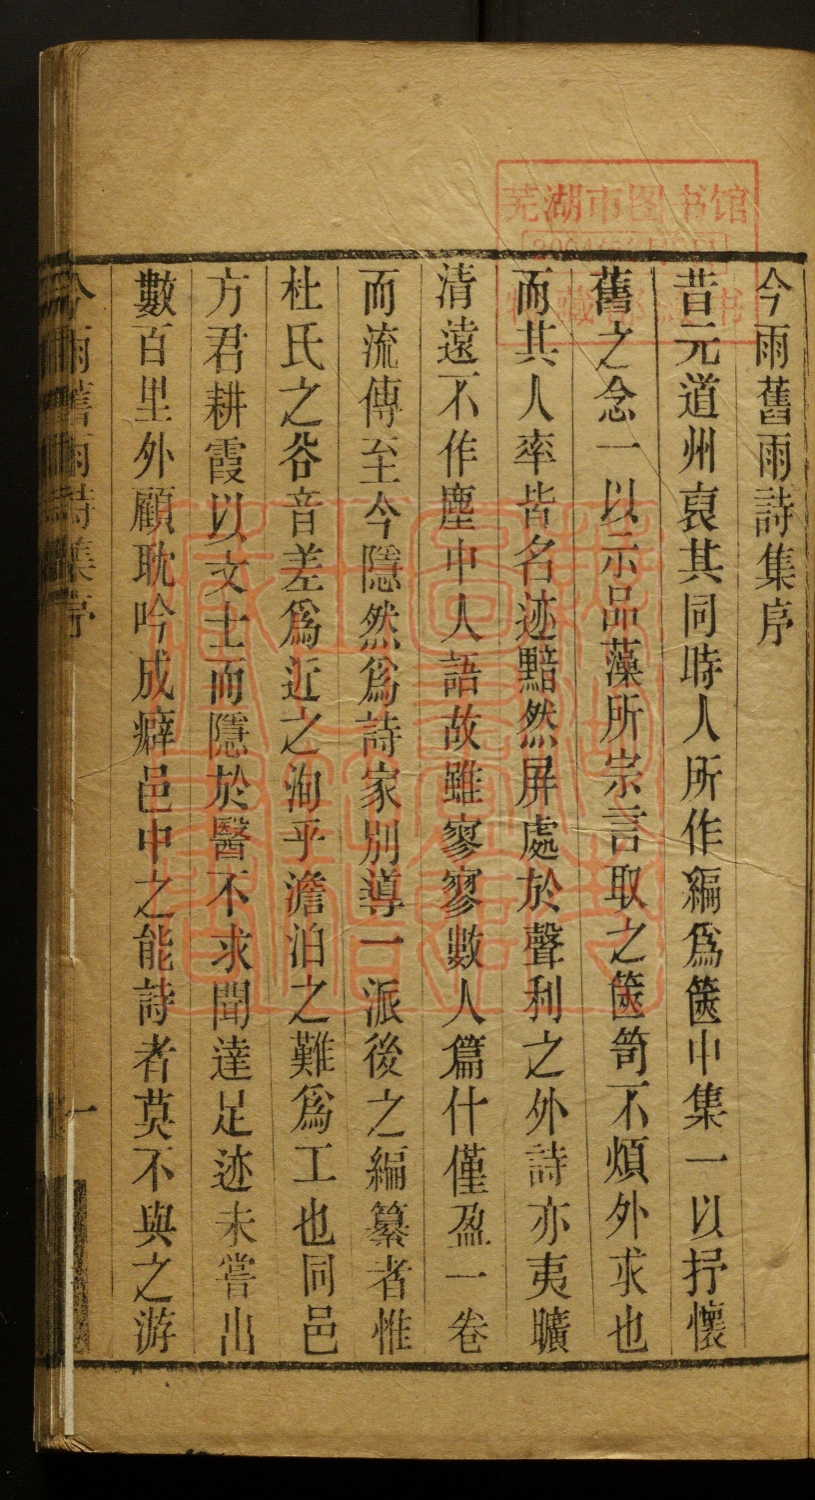 今雨舊雨詩集序
昔元道州裒其同時人所作編爲篋中集一以抒懷
舊之念一以示品藻所宗言取之篋笥不煩外求也
而其人率皆名迹黯然屏處於聲利之外詩亦夷曠
清遠不作塵中人語故雖寥寥數人篇什僅盈一卷
而流傳至今隱然爲詩家別導一派後之編纂者惟
杜氏之谷音差爲近之洵乎澹泊之難爲工也同邑
方君耕霞以文士而隱於醫不求聞達足迹未嘗出
數百里外顧耽吟成癖邑中之能詩者莫不與之游
今雨舊雨詩集序
一
芜湖市图书馆
藏书